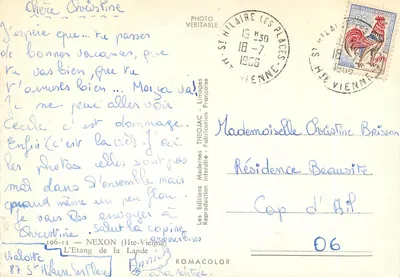 Chère Christine
J'espère que... tu passes
de bonnes vacances, que
tu vas bien, que tu
t'amuses bien... Moi ça va!
Je ne peux aller voir
Cécile c'est dommage.
Enfin (c'est la vie) J'ai
les photos elles sont pas
mal dans l'ensemble mais
quand même un peu flou.
Je vais les envoyer à
Christine. Salut la copine
106-12 - NEXON (Hte-Vienne)
L'Etang de la Lande
Violette
87 St
à la rentrée
PHOTO
VERITABLE
Les Editions Modernes THEOJAC - Limoges
Reproduction interdite - Fabrication Française
ROMACOLOR
ST HILAIRE LES PLACES
18-7
1966
HTE VIENNE
ST HILAIRE LES PLACES
HTE VIENNE
Mademoiselle Christine Brisson
Résidence Beausite
Cap d'Ail
06